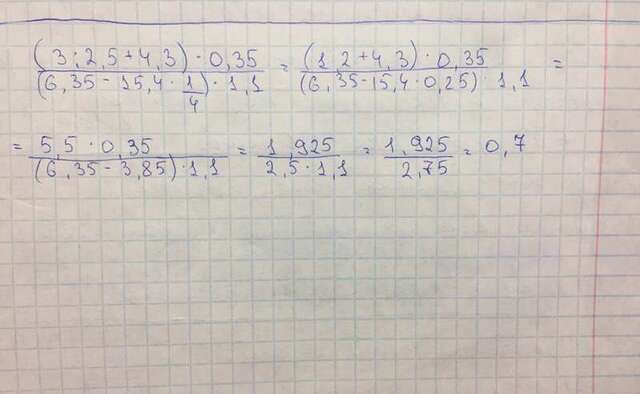 (3:2,5+4,3)·0,35 / (6,35-15,4·1/4)·1,1 = (1,2+4,3)·0,35 / (6,35-15,4·0,25)·1,1 =
= 5,5·0,35 / (6,35-3,85)·1,1 = 1,925 / 2,5·1,1 = 1,925 / 2,75 = 0,7